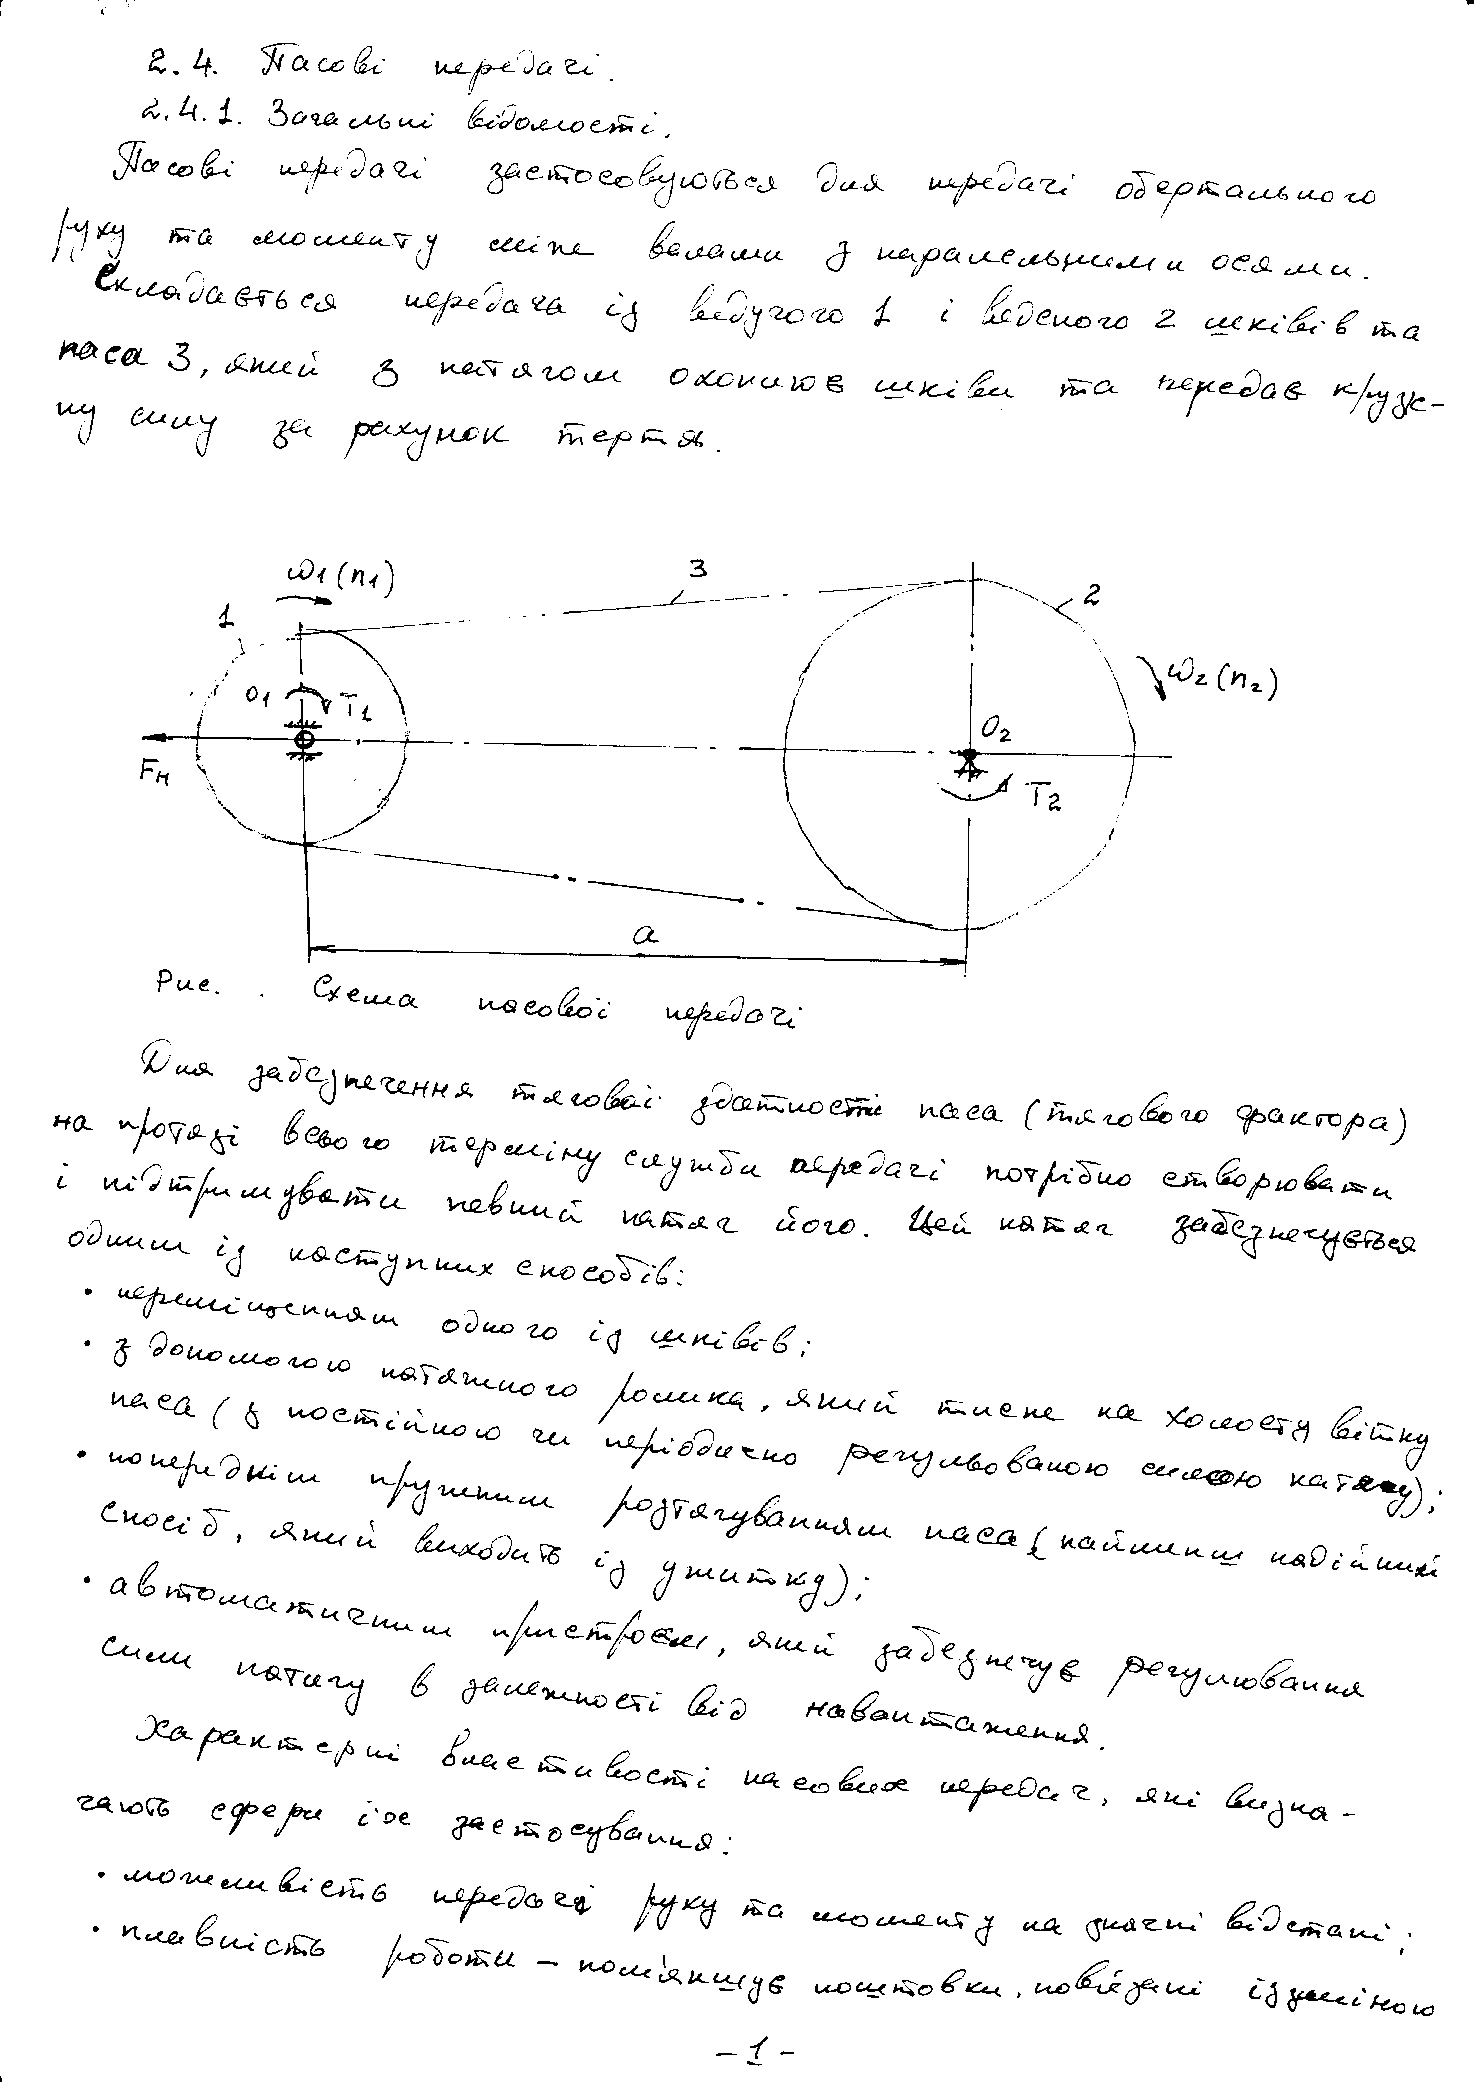 2.4. Пасові передачі.
2.4.1. Загальні відомості.
Пасові передачі застосовуються для передачі обертального
руху та моменту між валами з паралельними осями.
Складається передача із ведучого 1 і веденого 2 шківів та
паса 3, який з натягом охоплює шківи та передає круж-
ну силу за рахунок тертя.
ω1(n1)
3
1
2
ω2(n2)
O1
T1
O2
Fн
T2
a
Рис. . Схема пасової передачі
Для забезпечення тягової здатності паса (тягового фактора)
на протязі всього терміну служби передачі потрібно створювати
і підтримувати певний натяг його. Цей натяг забезпечується
одним із наступних способів:
• переміщенням одного із шківів;
• з допомогою натяжного ролика, який тисне на холосту вітку
паса (з постійною чи періодично регульованою силою натягу);
• попереднім пружним розтягуванням паса (найменш надійний
спосіб, який виходить із ужитку);
• автоматичним пристроєм, який забезпечує регулювання
сили натягу в залежності від навантаження.
Характерні властивості пасових передач, які визна-
чають сфери їх застосування:
• можливість передачі руху та моменту на значні відстані;
• плавність роботи – пом'якшує поштовхи, пов'язані із зміною
- 1 -